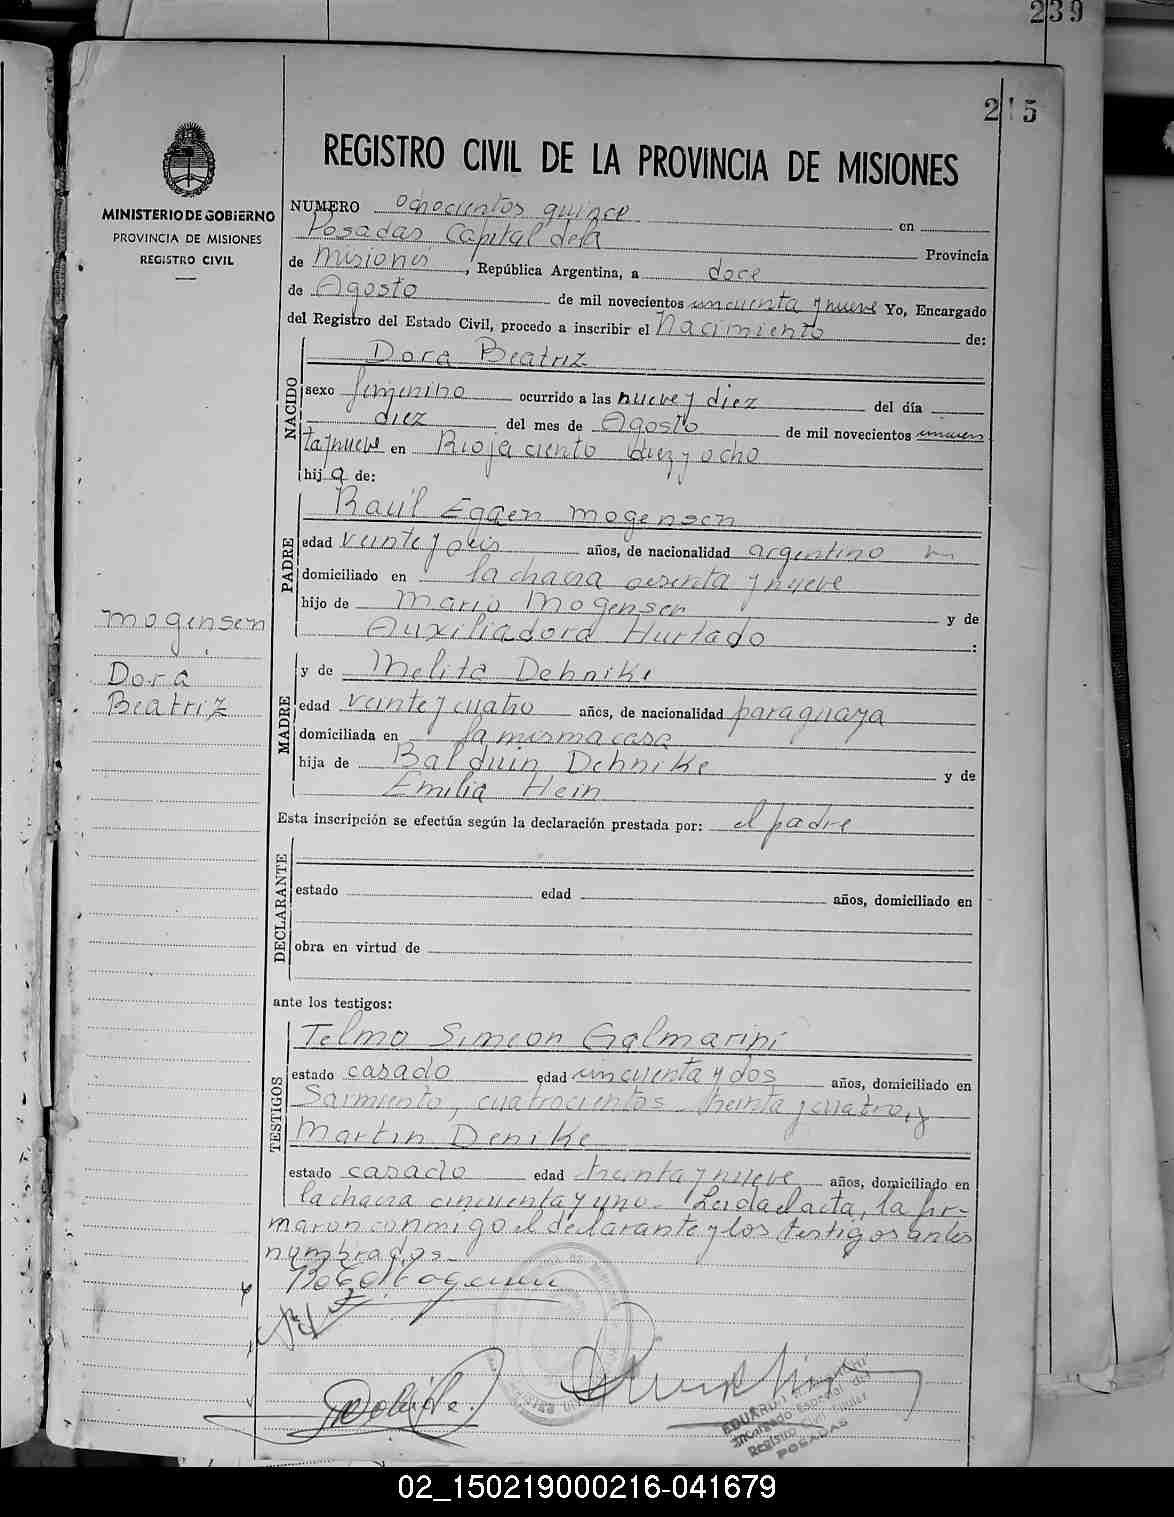 239
215
REGISTRO CIVIL DE LA PROVINCIA DE MISIONES
MINISTERIO DE GOBIERNO
PROVINCIA DE MISIONES
REGISTRO CIVIL
NUMERO ochocientos quince en
Posadas Capital de la Provincia
de Misiones, República Argentina, a doce
de Agosto de mil novecientos cincuenta y nueve Yo, Encargado
del Registro del Estado Civil, procedo a inscribir el Nacimiento de:
NACIDO
Dora Beatriz
sexo femenino ocurrido a las nueve y diez del día
diez del mes de Agosto de mil novecientos cincuen
ta y nueve en Rioja ciento diez y ocho
hija de:
PADRE
Raúl Egaen Mogensen
edad veinte y seis años, de nacionalidad argentino
domiciliado en la chacra sesenta y nueve
hijo de Mario Mogensen y de
Auxiliadora Hurtado :
Mogensen
Dora
Beatriz
MADRE
y de Melita Dehnike
edad veinte y cuatro años, de nacionalidad paraguaya
domiciliada en la misma casa
hija de Balduin Dehnike y de
Emilia Hein
Esta inscripción se efectúa según la declaración prestada por: el padre
DECLARANTE
estado edad años, domiciliado en
obra en virtud de
ante los testigos:
TESTIGOS
Telmo Simeon Galmarini
estado casado edad cincuenta y dos años, domiciliado en
Sarmiento, cuatrocientos treinta y cuatro, y
Martin Denike
estado casado edad treinta y nueve años, domiciliado en
la chacra cincuenta y uno. Leida el acta, la fir-
maron conmigo el declarante y los testigos antes
nombrados.
Encargado Especial del
Registro Civil
POSADAS
02_150219000216-041679